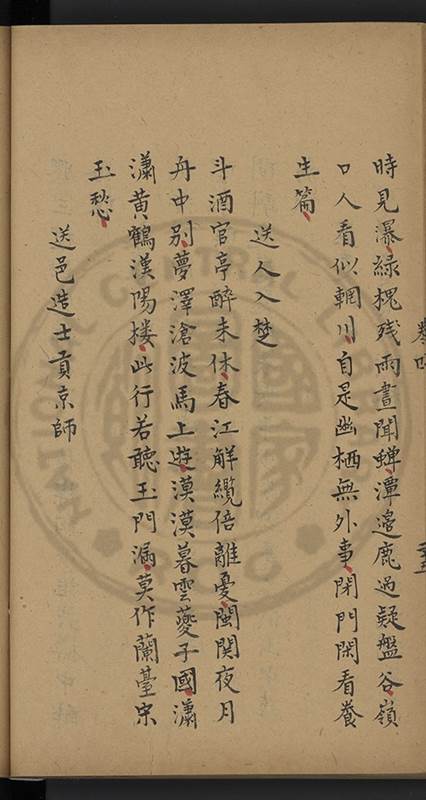 時見瀑綠槐残雨晝聞蟬潭邉鹿過疑盤谷嶺
口人看似輞川自是幽栖無外事閉門閑看養
生篇
送人入楚
斗酒官亭醉未休春江解纜倍離憂閩関夜月
舟中别夢澤滄波馬上遊漠漠暮雲夔子國瀟
瀟黄鶴漢陽楼此行若聽玉門漏莫作蘭臺宋
玉愁
送邑造士貢京師